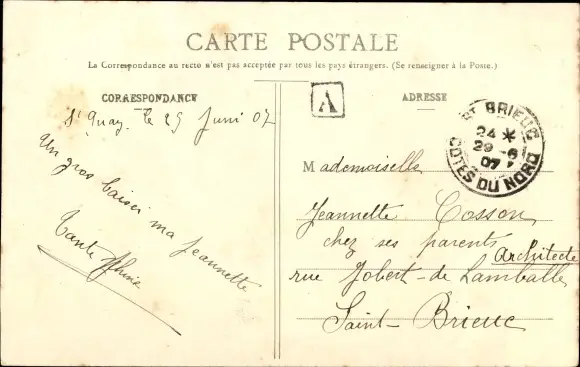 CARTE POSTALE
La Correspondance au recto n'est pas acceptée par tous les pays étrangers. (Se renseigner à la Poste.)
CORRESPONDANCE
St Quay, le 29 Juin 07
Un gros baiser ma Jeannette
Tante
A
ADRESSE
St BRIEUC
24 *
29 -6
07
COTES DU NORD
Mademoiselle
Jeannette Cosson
chez ses parents
architecte
rue Jobert-de Lamballe
Saint-Brieuc